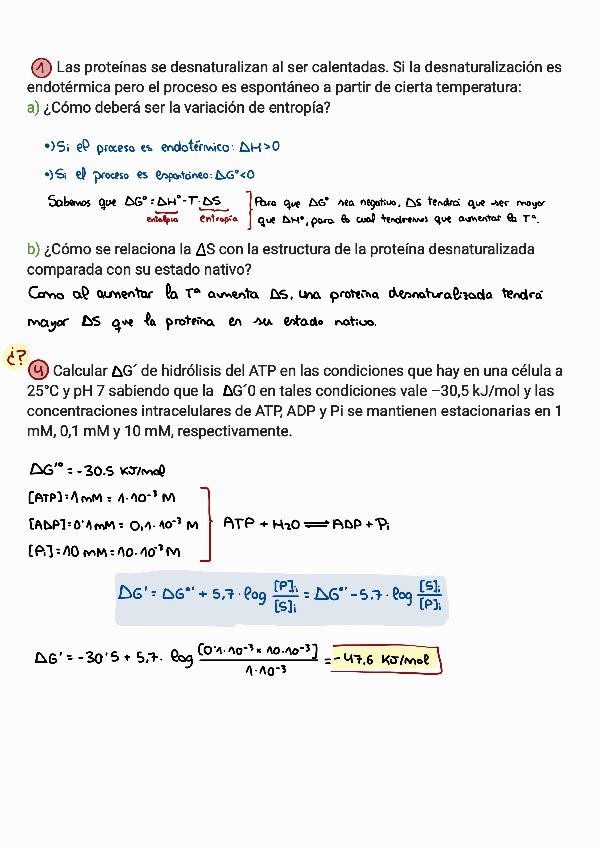 1 Las proteínas se desnaturalizan al ser calentadas. Si la desnaturalización es
endotérmica pero el proceso es espontáneo a partir de cierta temperatura:
a) ¿Cómo deberá ser la variación de entropía?
•) Si el proceso es endotérmico: ΔH>0
•) Si el proceso es espontáneo: ΔG°<0
Sabemos que ΔG° = ΔH° - T · ΔS
entalpía entropía
Para que ΔG° sea negativo, ΔS tendrá que ser mayor
que ΔH°, para lo cual tendremos que aumentar la Tª.
b) ¿Cómo se relaciona la ΔS con la estructura de la proteína desnaturalizada
comparada con su estado nativo?
Como al aumentar la Tª aumenta ΔS, una proteína desnaturalizada tendrá
mayor ΔS que la proteína en su estado nativo.
¿?
4 Calcular ΔG´ de hidrólisis del ATP en las condiciones que hay en una célula a
25°C y pH 7 sabiendo que la ΔG´0 en tales condiciones vale –30,5 kJ/mol y las
concentraciones intracelulares de ATP, ADP y Pi se mantienen estacionarias en 1
mM, 0,1 mM y 10 mM, respectivamente.
ΔG'° = -30.5 KJ/mol
[ATP] = 1 mM = 1·10⁻³ M
[ADP] = 0'1 mM = 0,1·10⁻³ M
[Pi] = 10 mM = 10·10⁻³ M
ATP + H2O ⇌ ADP + Pi
ΔG' = ΔG°' + 5,7 · log [P]i/[S]i = ΔG°' - 5,7 · log [S]i/[P]i
ΔG' = -30'5 + 5,7 · log [0'1·10⁻³ × 10·10⁻³]/1·10⁻³ = -47,6 KJ/mol